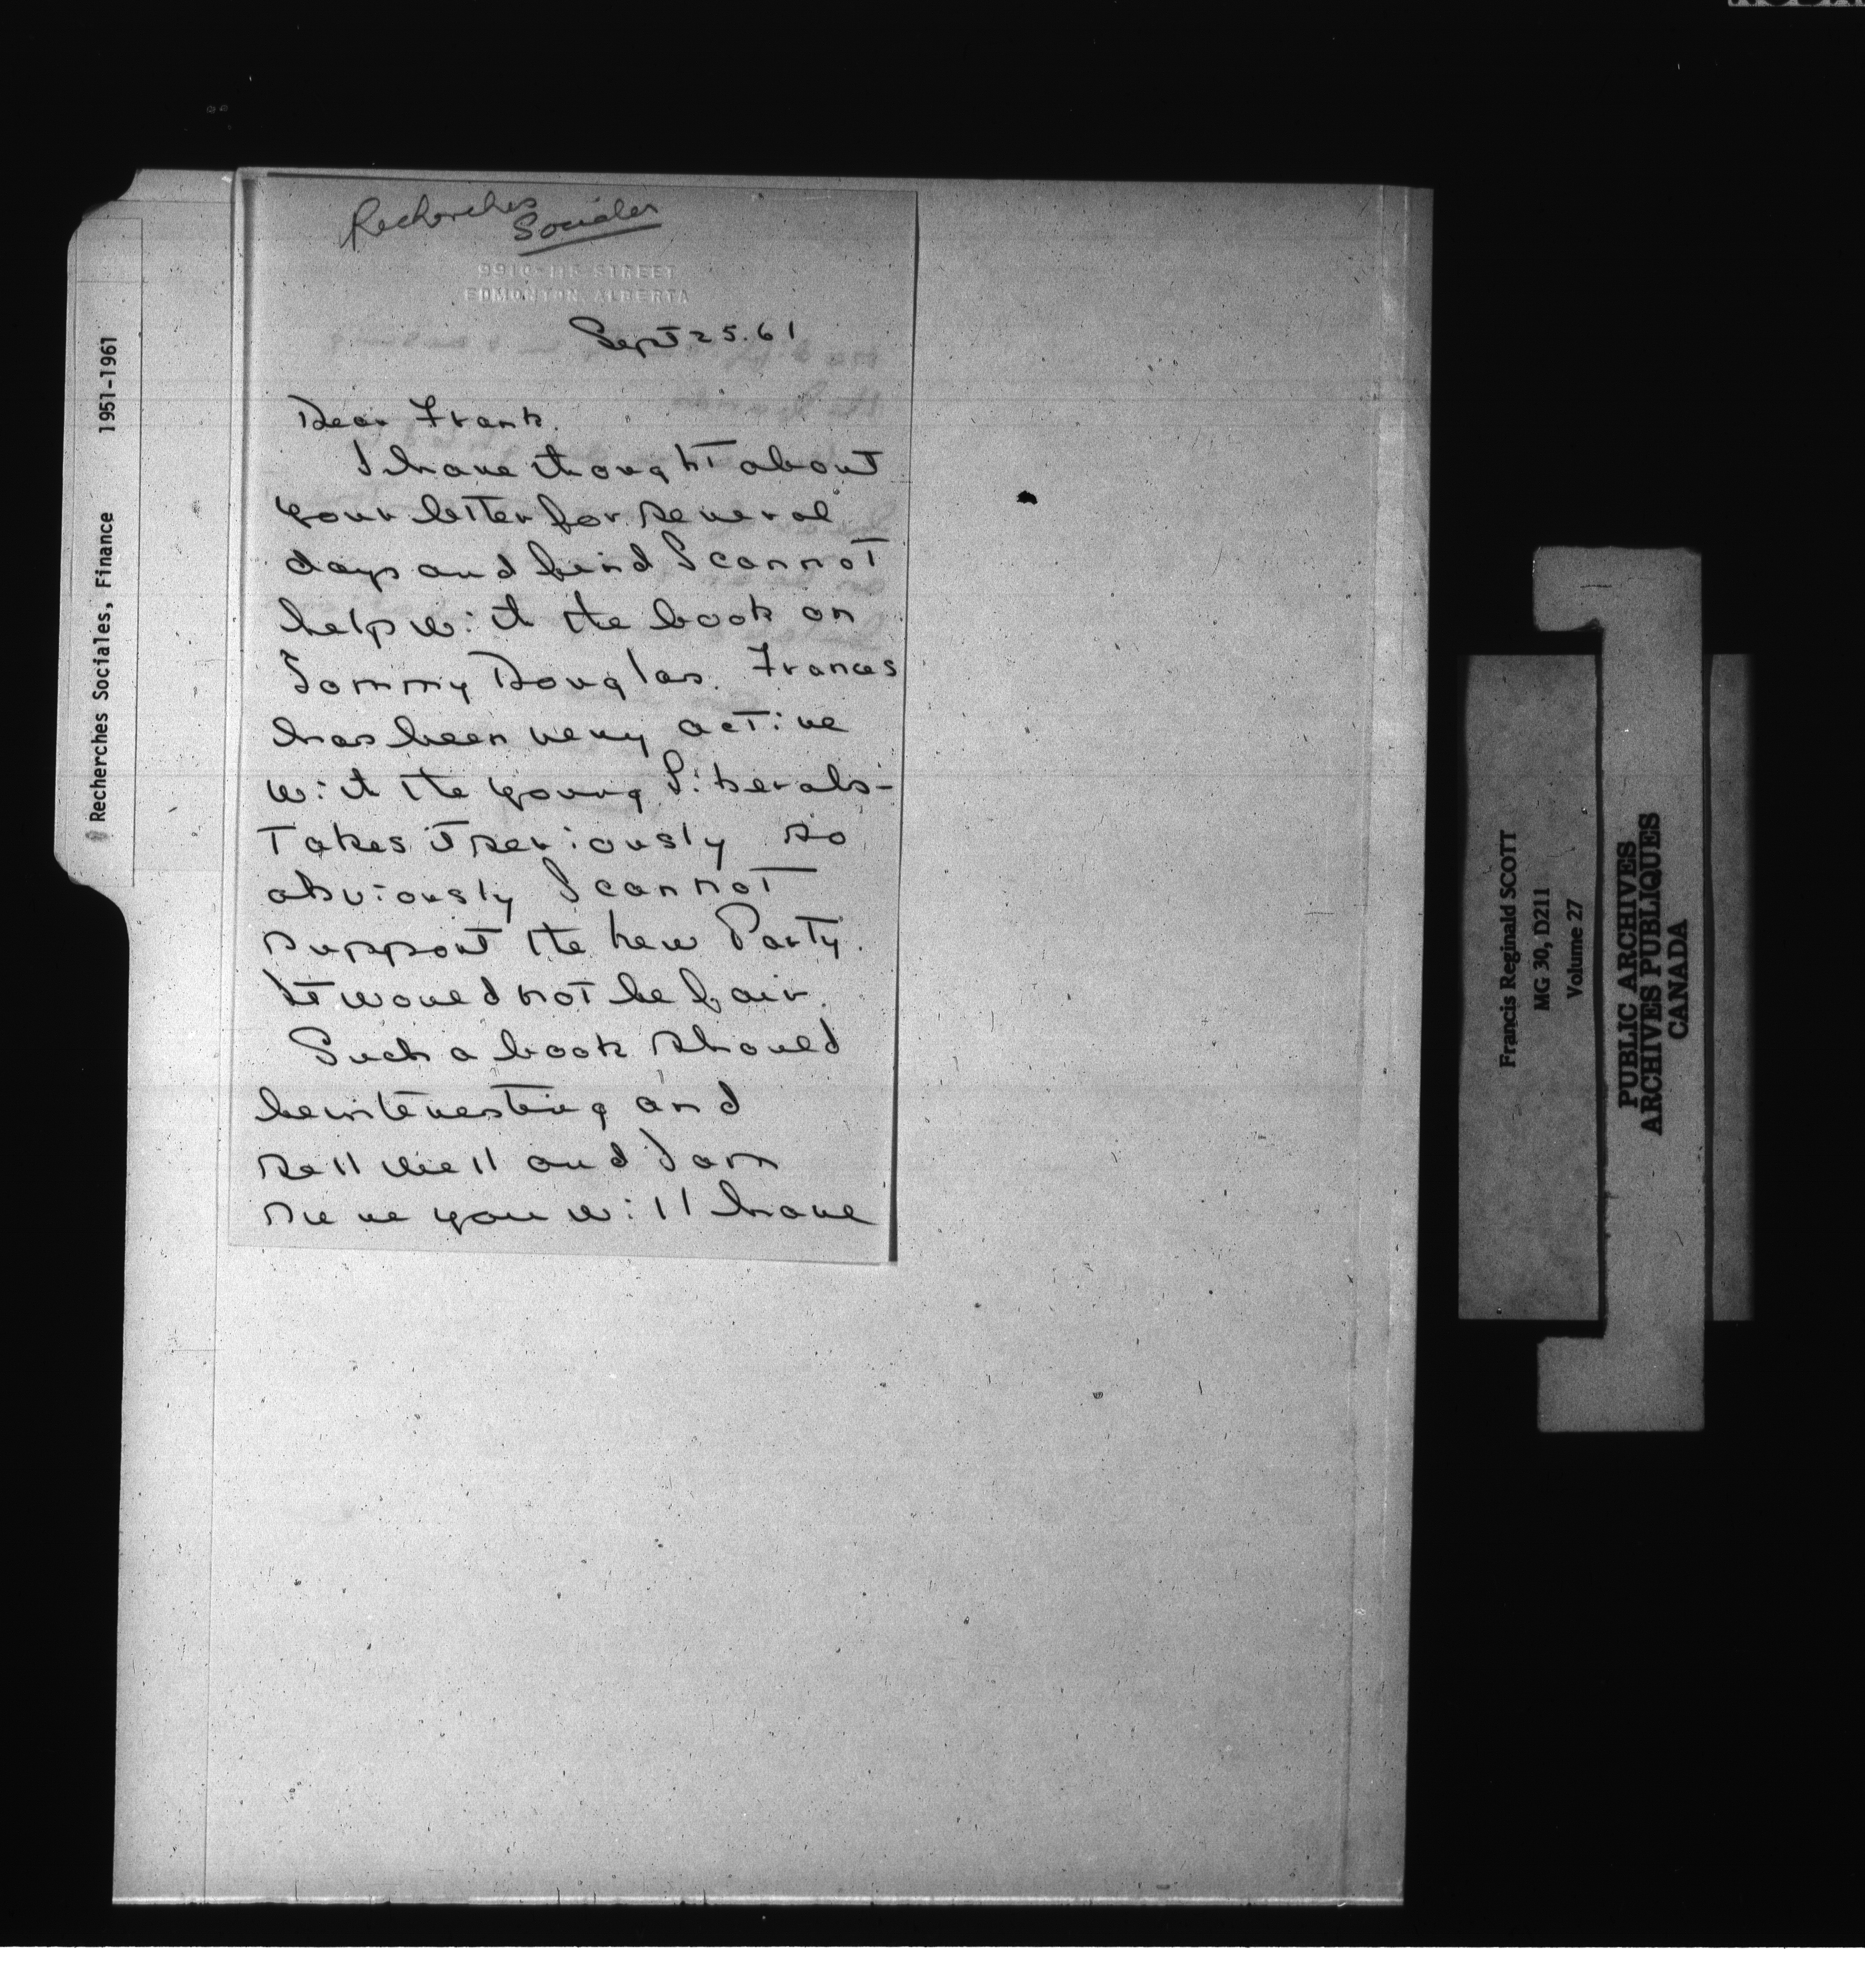 Recherches
Sociales
9910-115 STREET
EDMONTON, ALBERTA
Sept 25. 61
Dear Frank.
I have thought about
your letter for several
days and find I cannot
help with the book on
Tommy Douglas. Frances
has been very active
with the young Liberals -
Takes it seriously so
obviously I cannot
support the new Party.
It would not be fair.
Such a book should
be interesting and
sell well and I am
sure you will have
Recherches Sociales, Finance 1951-1961
Francis Reginald SCOTT
MG 30, D211
Volume 27
PUBLIC ARCHIVES
ARCHIVES PUBLIQUES
CANADA